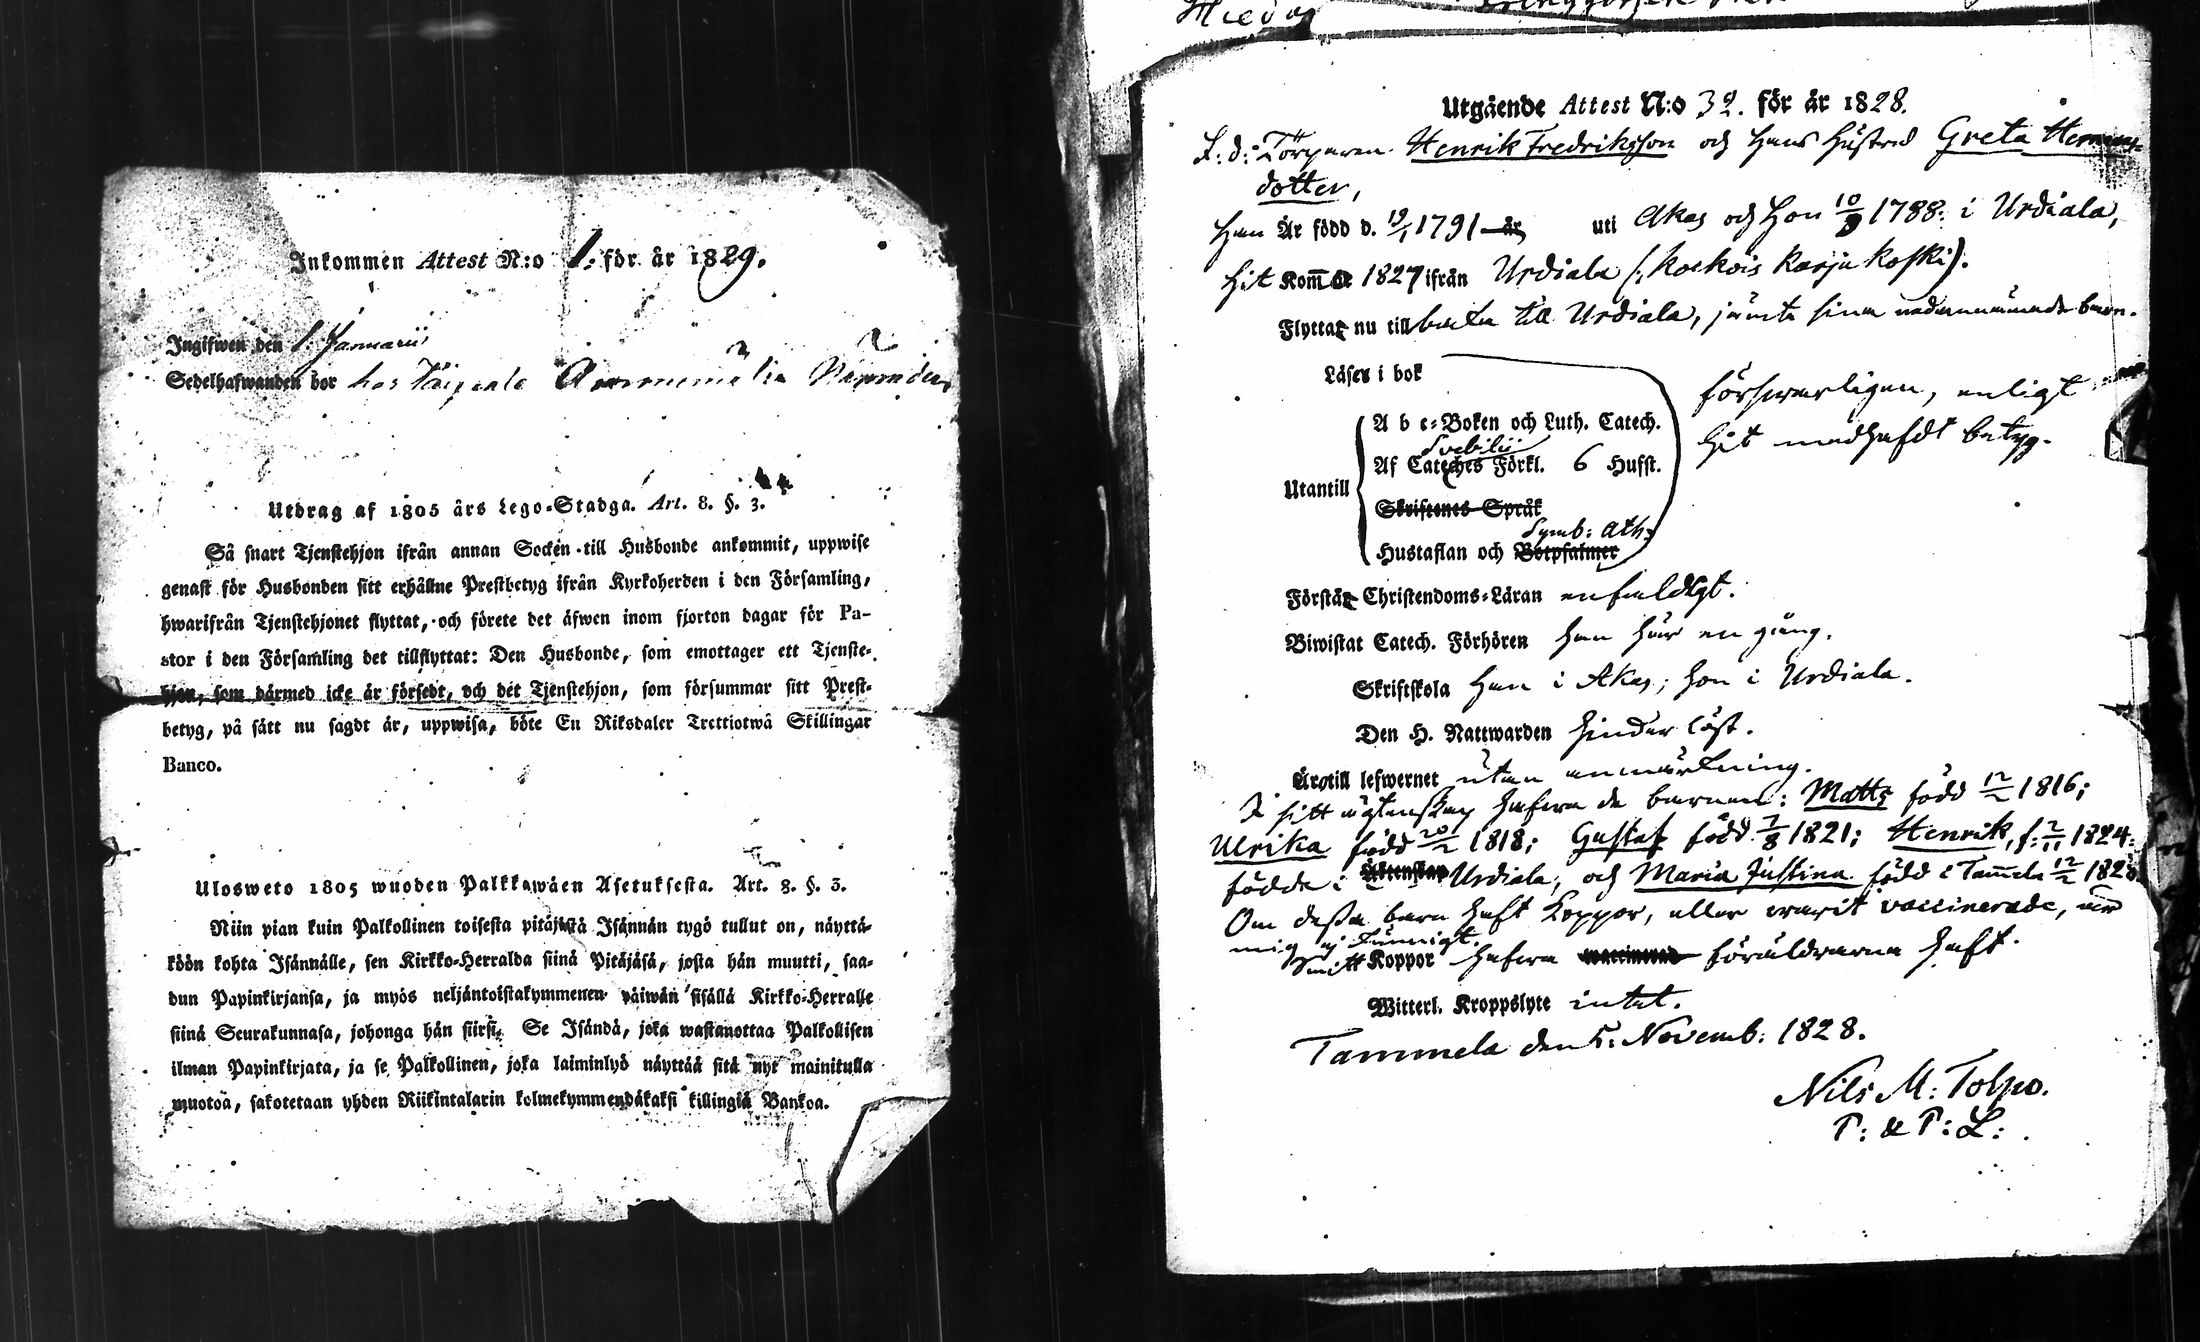 Inkommen Attest N:o 1. för år 1829.
Ingifwen den 1. Januarii
Sedelhafwanden bor hos
Utdrag af 1805 års Lego-Stadga. Art. 8. §. 3.
Så snart Tjenstehjon ifrån annan Socken till Husbonde ankommit, uppwise
genast för Husbonden sitt erhållne Prestbetyg ifrån Kyrkoherden i den Församling,
hwarifrån Tjenstehjonet flyttat, och förete det äfwen inom fjorton dagar för Pa-
stor i den Församling det tillflyttat: Den Husbonde, som emottager ett Tjenste-
hjon, som därmed icke är försedt, och det Tjenstehjon, som försummar sitt Prest-
betyg, på sätt nu sagdt är, uppwisa, böte En Riksdaler Trettiotwå Skillingar
Banco.
Ulosweto 1805 wuoden Palkkawäen Asetuksesta. Art. 8. §. 3.
Niin pian kuin Palkollinen toisesta pitäjästä Isännän tygö tullut on, näyttä-
köön kohta Isännälle, sen Kirkko-Herralda siinä Pitäjäsä, josta hän muutti, saa-
dun Papinkirjansa, ja myös neljäntoistakymmenen päiwän sisällä Kirkko-Herralle
siinä Seurakunnasa, johonga hän siirsi. Se Isändä, joka wastanottaa Palkollisen
ilman Papinkirjata, ja se Palkollinen, joka laiminlyö näyttää sitä nyt mainitulla
muotoa, sakotetaan yhden Riikintalarin kolmekymmendäkaksi killingiä Bankoa.
Utgående Attest N:o 32. för år 1828.
F: d: Torparen Henrik Fredriksson och hans hustru Greta
dotter,
Han Är född d. 19/1 1791 år uti Akas och hon 10/9 1788: i Urdiala,
hit Kom̄o 1827 ifrån Urdiala (: Kockois Karjukoski).
Flyttar nu till baka till Urdiala, jämte sina nedannämnde barn.
Läser i bok
försvarligen, enligt
A b c-Boken och Luth. Catech.
hit medhafdt betyg.
Svebilii
Af Cateches Förkl. 6 Hufst.
Utantill
Skriftenes Språk
Symb: Ath:
Hustaflan och Botpsalmer
Förstår Christendoms-Läran enfaldigt.
Biwistat Catech. Förhören han här en gång.
Skriftskola han i Akas; hon i Urdiala.
Den H. Nattwarden hinderlöst.
Äro till lefwernet utan anmärkning.
I sitt ägtenskap hafva de barnen: Matts född 12/2 1816;
Ulrika född 20/2 1818; Gustaf född 7/8 1821; Henrik, f: 2/11 1824:
födde i Urdiala, och Maria Justina född i Tam̄ela 12/2 182
Om dessa barn haft koppor, eller varit vaccinerade, är
mig ej kunnigt.
Smitt Koppor hafva föräldrarna haft.
Witterl. Kroppslyte intet.
Tammela den 5: Novemb: 1828.
Nils M: Tolpo.
P: & P: L: